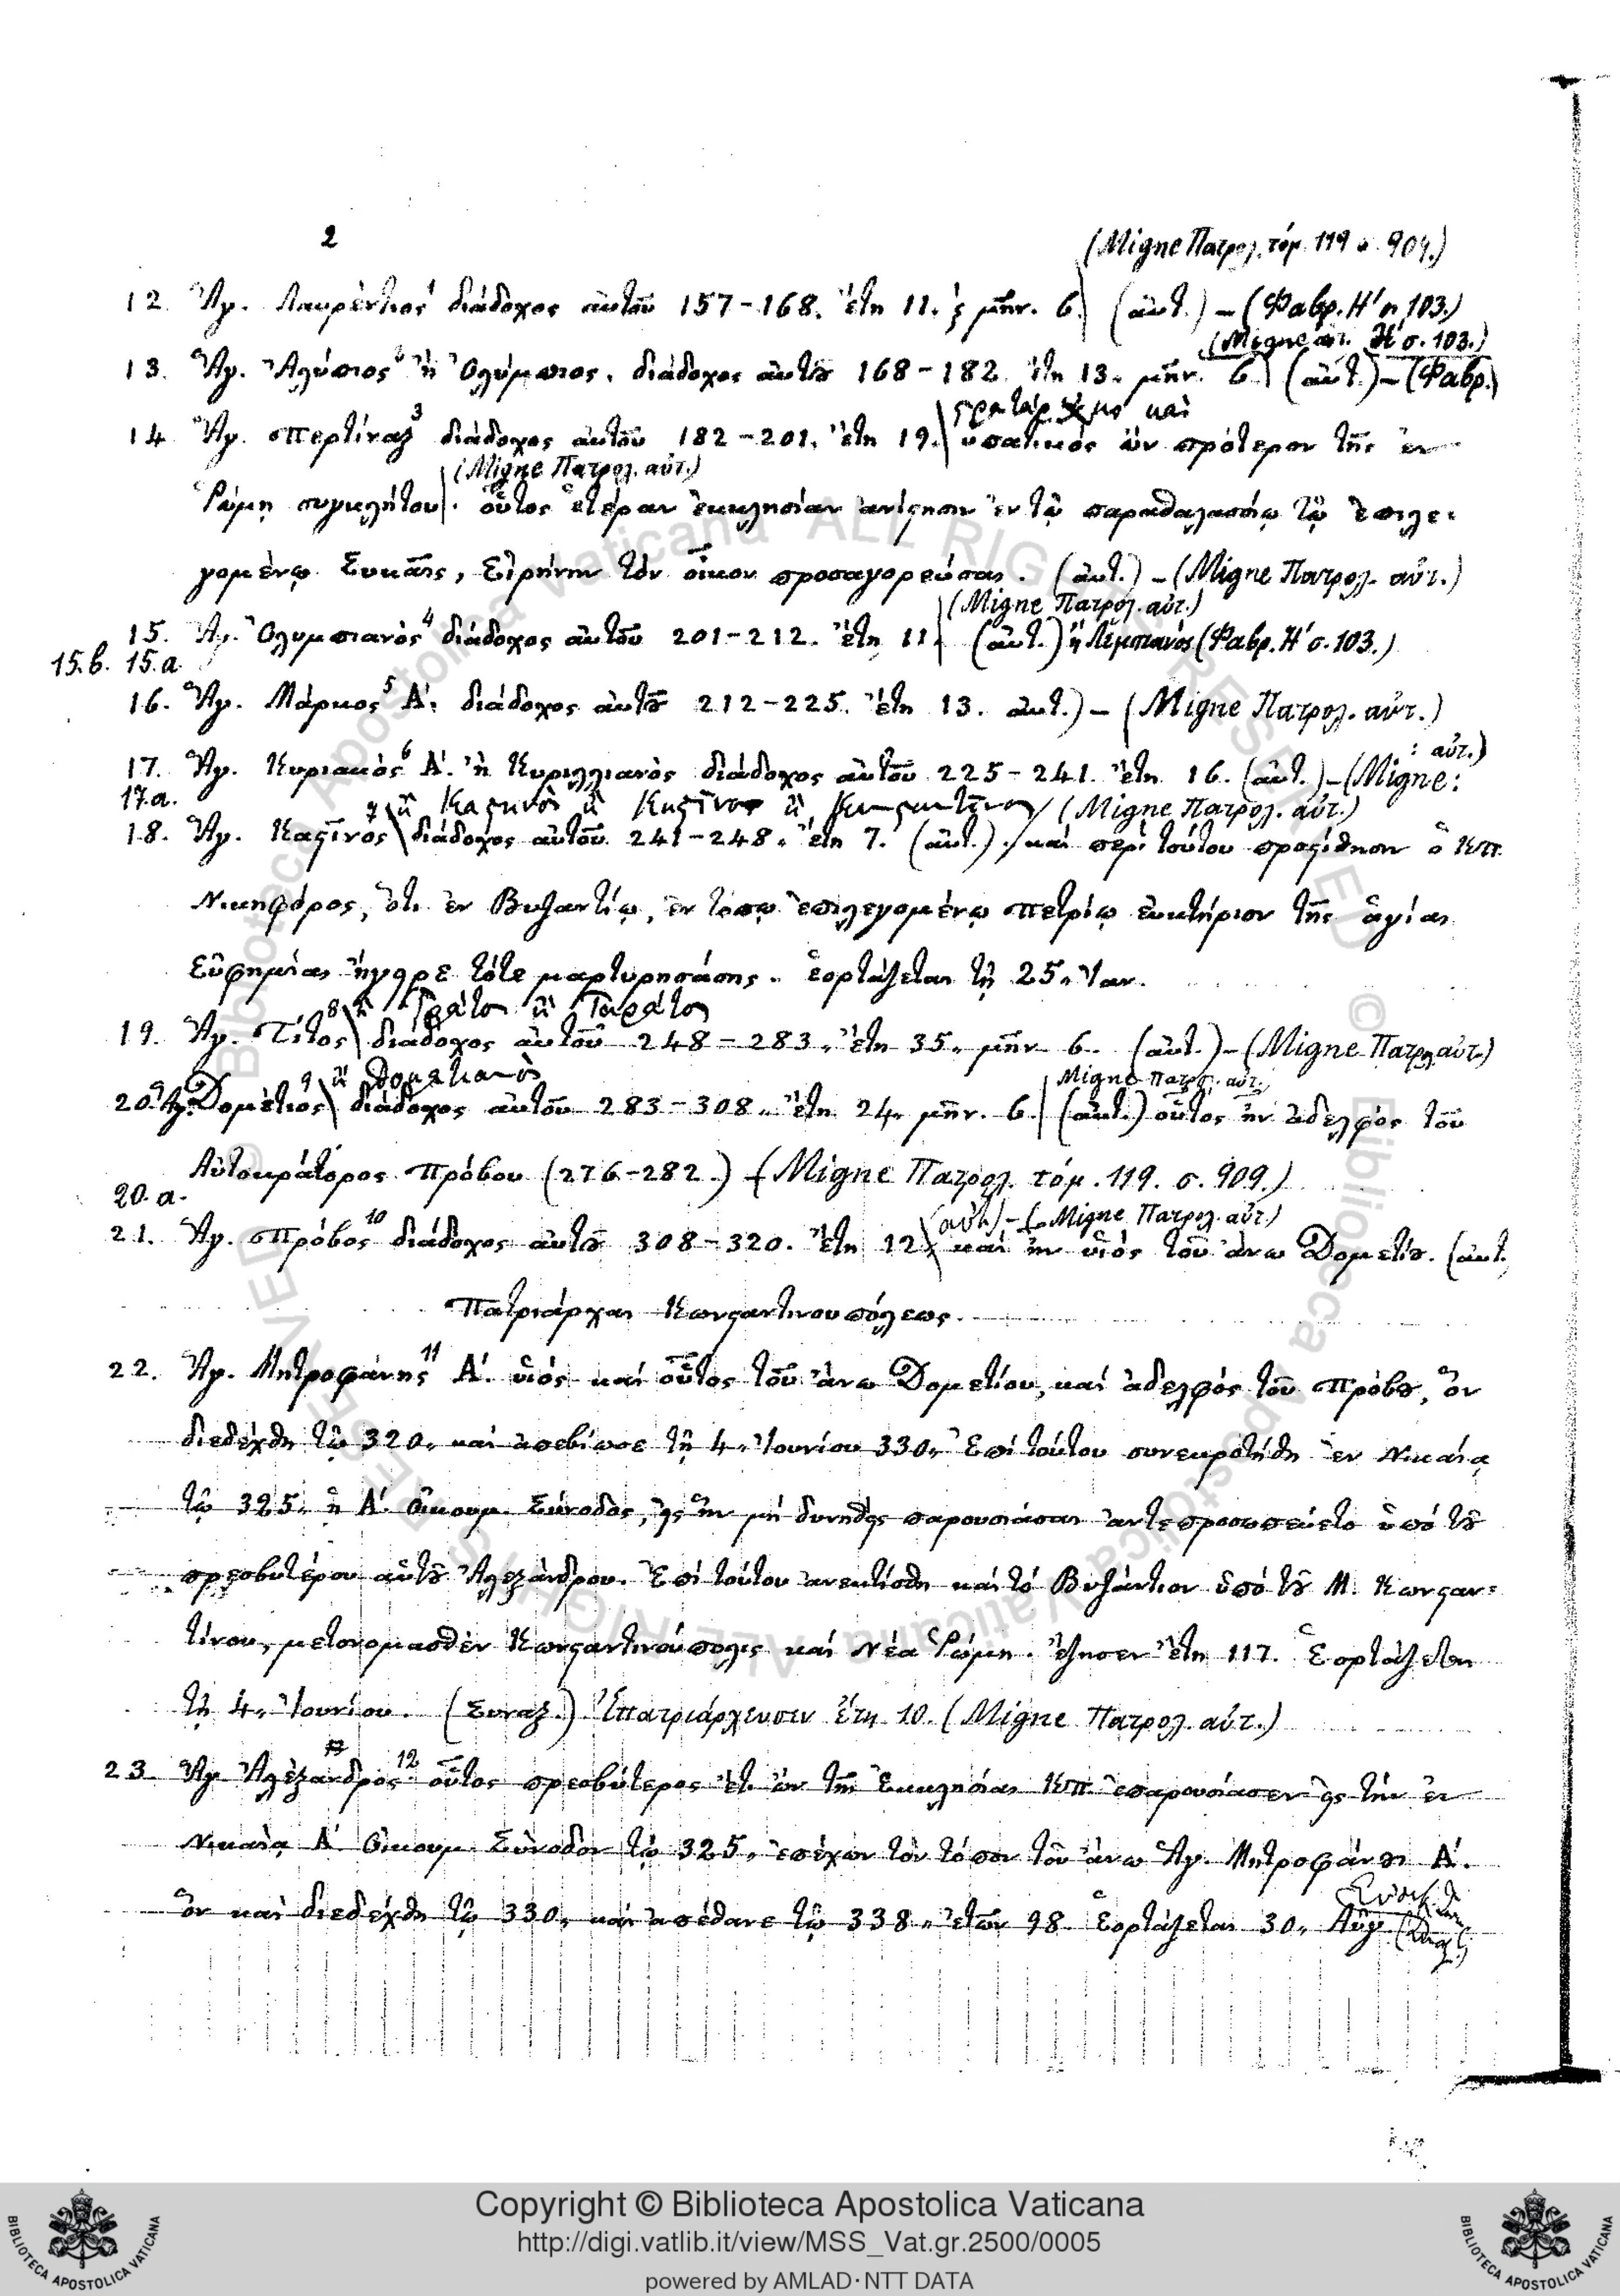 2
(Migne Πατρολ. τόμ. 119 σ. 909.)
12. Ἅγ. Λαυρέντιος διάδοχος αὐτοῦ 157-168. ἔτη 11. ϛ μῆν. 6. (αὐτ.) - (Φαβρ. Η΄ σ. 103.)
(Migne αὐτ. Η΄ σ. 103.)
13. Ἅγ. Ἀλύπιος ἢ Ὀλύμπιος. διάδοχος αὐτοῦ 168-182. ἔτη 13. μῆν. 6. (αὐτ.) - (Φαβρ.)
καὶ
14. Ἅγ. Περτίναξ 3 διάδοχος αὐτοῦ 182-201. ἔτη 19. ὑπατικός ὢν πρότερον τῆς ἐν
(Migne Πατρολ. αὐτ.)
Ῥώμῃ συγκλήτου. οὗτος ἑτέραν ἐκκλησίαν ἀνέστησεν ἐν τῷ παραθαλασσίῳ τῷ ἐπιλε-
γομένῳ Συκαῖς, Εἰρήνην τὸν οἶκον προσαγορεύσας. (αὐτ.) - (Migne Πατρολ. αὐτ.)
(Migne Πατρολ. αὐτ.)
15. Ἅγ. Ὀλυμπιανὸς 4 διάδοχος αὐτοῦ 201-212. ἔτη 11. (αὐτ.) ἢ Λεμπιανός (Φαβρ. Η΄ σ. 103.)
15.β. 15.α
16. Ἅγ. Μάρκος 5 Α΄. διάδοχος αὐτοῦ 212-225. ἔτη 13. αὐτ.) - (Migne Πατρολ. αὐτ.)
: αὐτ.)
17. Ἅγ. Κυριακὸς 6 Α΄. ἢ Κυριλλιανὸς διάδοχος αὐτοῦ 225-241. ἔτη 16. (αὐτ.) - (Migne:
17.α. 7 ἢ ἢ Κωνσταντῖνος (Migne Πατρολ. αὐτ.)
18. Ἅγ. Καστῖνος διάδοχος αὐτοῦ 241-248. ἔτη 7. (αὐτ.) καὶ περὶ τούτου προστίθησιν ὁ Κπ.
Νικηφόρος, ὅτι ἐν Βυζαντίῳ, ἐν τόπῳ ἐπιλεγομένῳ Πετρίῳ εὐκτήριον τῆς ἁγίας
Εὐφημίας ἤγειρε τότε μαρτυρησάσης. ἑορτάζεται τῇ 25. Ἰαν.
8 ἢ
19. Ἅγ. Τίτος διάδοχος αὐτοῦ 248-283. ἔτη 35. μῆν. 6. (αὐτ.) - (Migne Πατρολ. αὐτ.)
9 ἢ Δομετιανὸς Migne Πατρολ. αὐτ.
20. Ἅγ. Δομέτιος διάδοχος αὐτοῦ 283-308. ἔτη 24. μῆν. 6. (αὐτ.) οὗτος ἦν ἀδελφός τοῦ
Αὐτοκράτορος Πρόβου (276-282.) (Migne Πατρολ. τόμ. 119. σ. 909.)
20.α.
(αὐτ.) - (Migne Πατρολ. αὐτ.)
21. Ἅγ. Πρόβος 10 διάδοχος αὐτοῦ 308-320. ἔτη 12. καὶ ἦν υἱός τοῦ ἄνω Δομετίου. (αὐτ.
Πατριάρχαι Κωνσταντινουπόλεως.
22. Ἅγ. Μητροφάνης 11 Α΄. υἱός καὶ οὗτος τοῦ ἄνω Δομετίου, καὶ ἀδελφός τοῦ Πρόβου, ὃν
διεδέχθη τῷ 320. καὶ ἀπεβίωσε τῇ 4. Ἰουνίου 330. Ἐπὶ τούτου συνεκροτήθη ἐν Νικαίᾳ
τῷ 325. ἡ Α΄. Οἰκουμ. Σύνοδος, εἰς ἣν μὴ δυνηθεὶς παρουσιάσαι ἀντεπροσωπεύετο ὑπὸ τοῦ
πρεσβυτέρου αὐτοῦ Ἀλεξάνδρου. Ἐπὶ τούτου ἀνεκτίσθη καὶ τὸ Βυζάντιον ὑπὸ τοῦ Μ. Κωνσταν-
τίνου, μετονομασθὲν Κωνσταντινούπολις καὶ Νέα Ῥώμη. ἔζησεν ἔτη 117. Ἑορτάζεται
τῇ 4. Ἰουνίου. (Συναξ.) Ἐπατριάρχευσεν ἔτη 10. (Migne Πατρολ. αὐτ.)
23. Ἅγ. Ἀλέξανδρος 12 οὗτος πρεσβύτερος ἔτι ὢν τῆς Ἐκκλησίας Κπ. ἐπαρουσίασεν εἰς τὴν ἐν
Νικαίᾳ Α΄. Οἰκουμ. Σύνοδον τῷ 325. ἐπέχων τὸν τόπον τοῦ ἄνω Ἁγ. Μητροφάνου Α΄.
ὃν καὶ διεδέχθη τῷ 330. καὶ ἀπέθανε τῷ 338. ἐτῶν 98. Ἑορτάζεται 30. Αὐγ.
Copyright © Biblioteca Apostolica Vaticana
http://digi.vatlib.it/view/MSS_Vat.gr.2500/0005
powered by AMLAD·NTT DATA